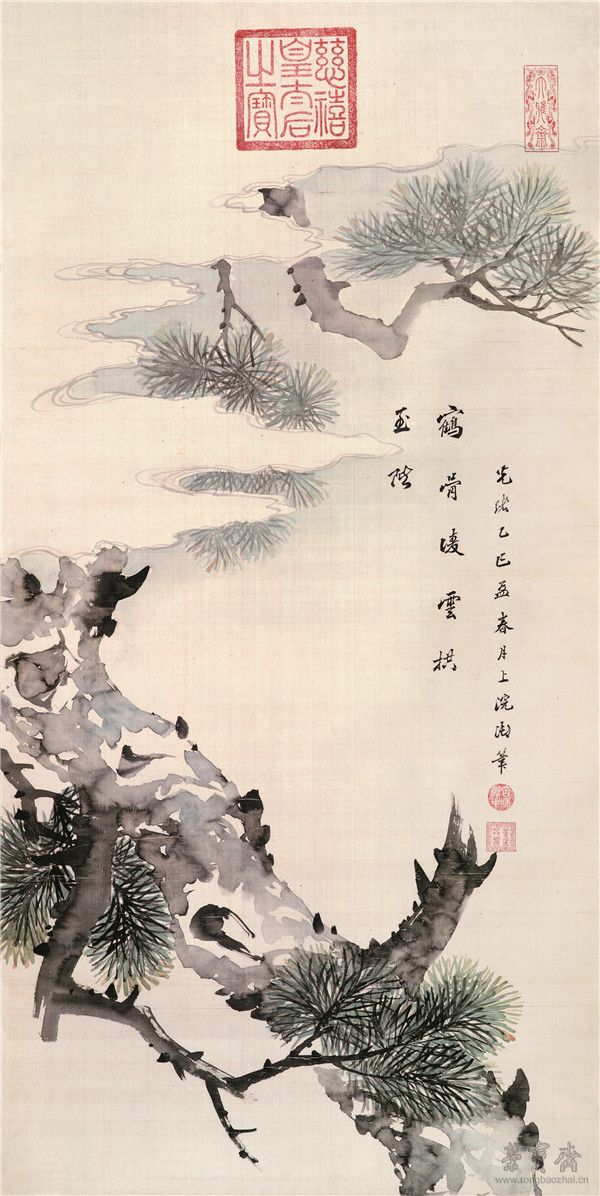 慈禧皇太后之寶
大雅齋
光緒乙巳孟春月上浣御筆
鶴骨凌雲拱
玉階
榮寶齋
www.rongbaozhai.cn